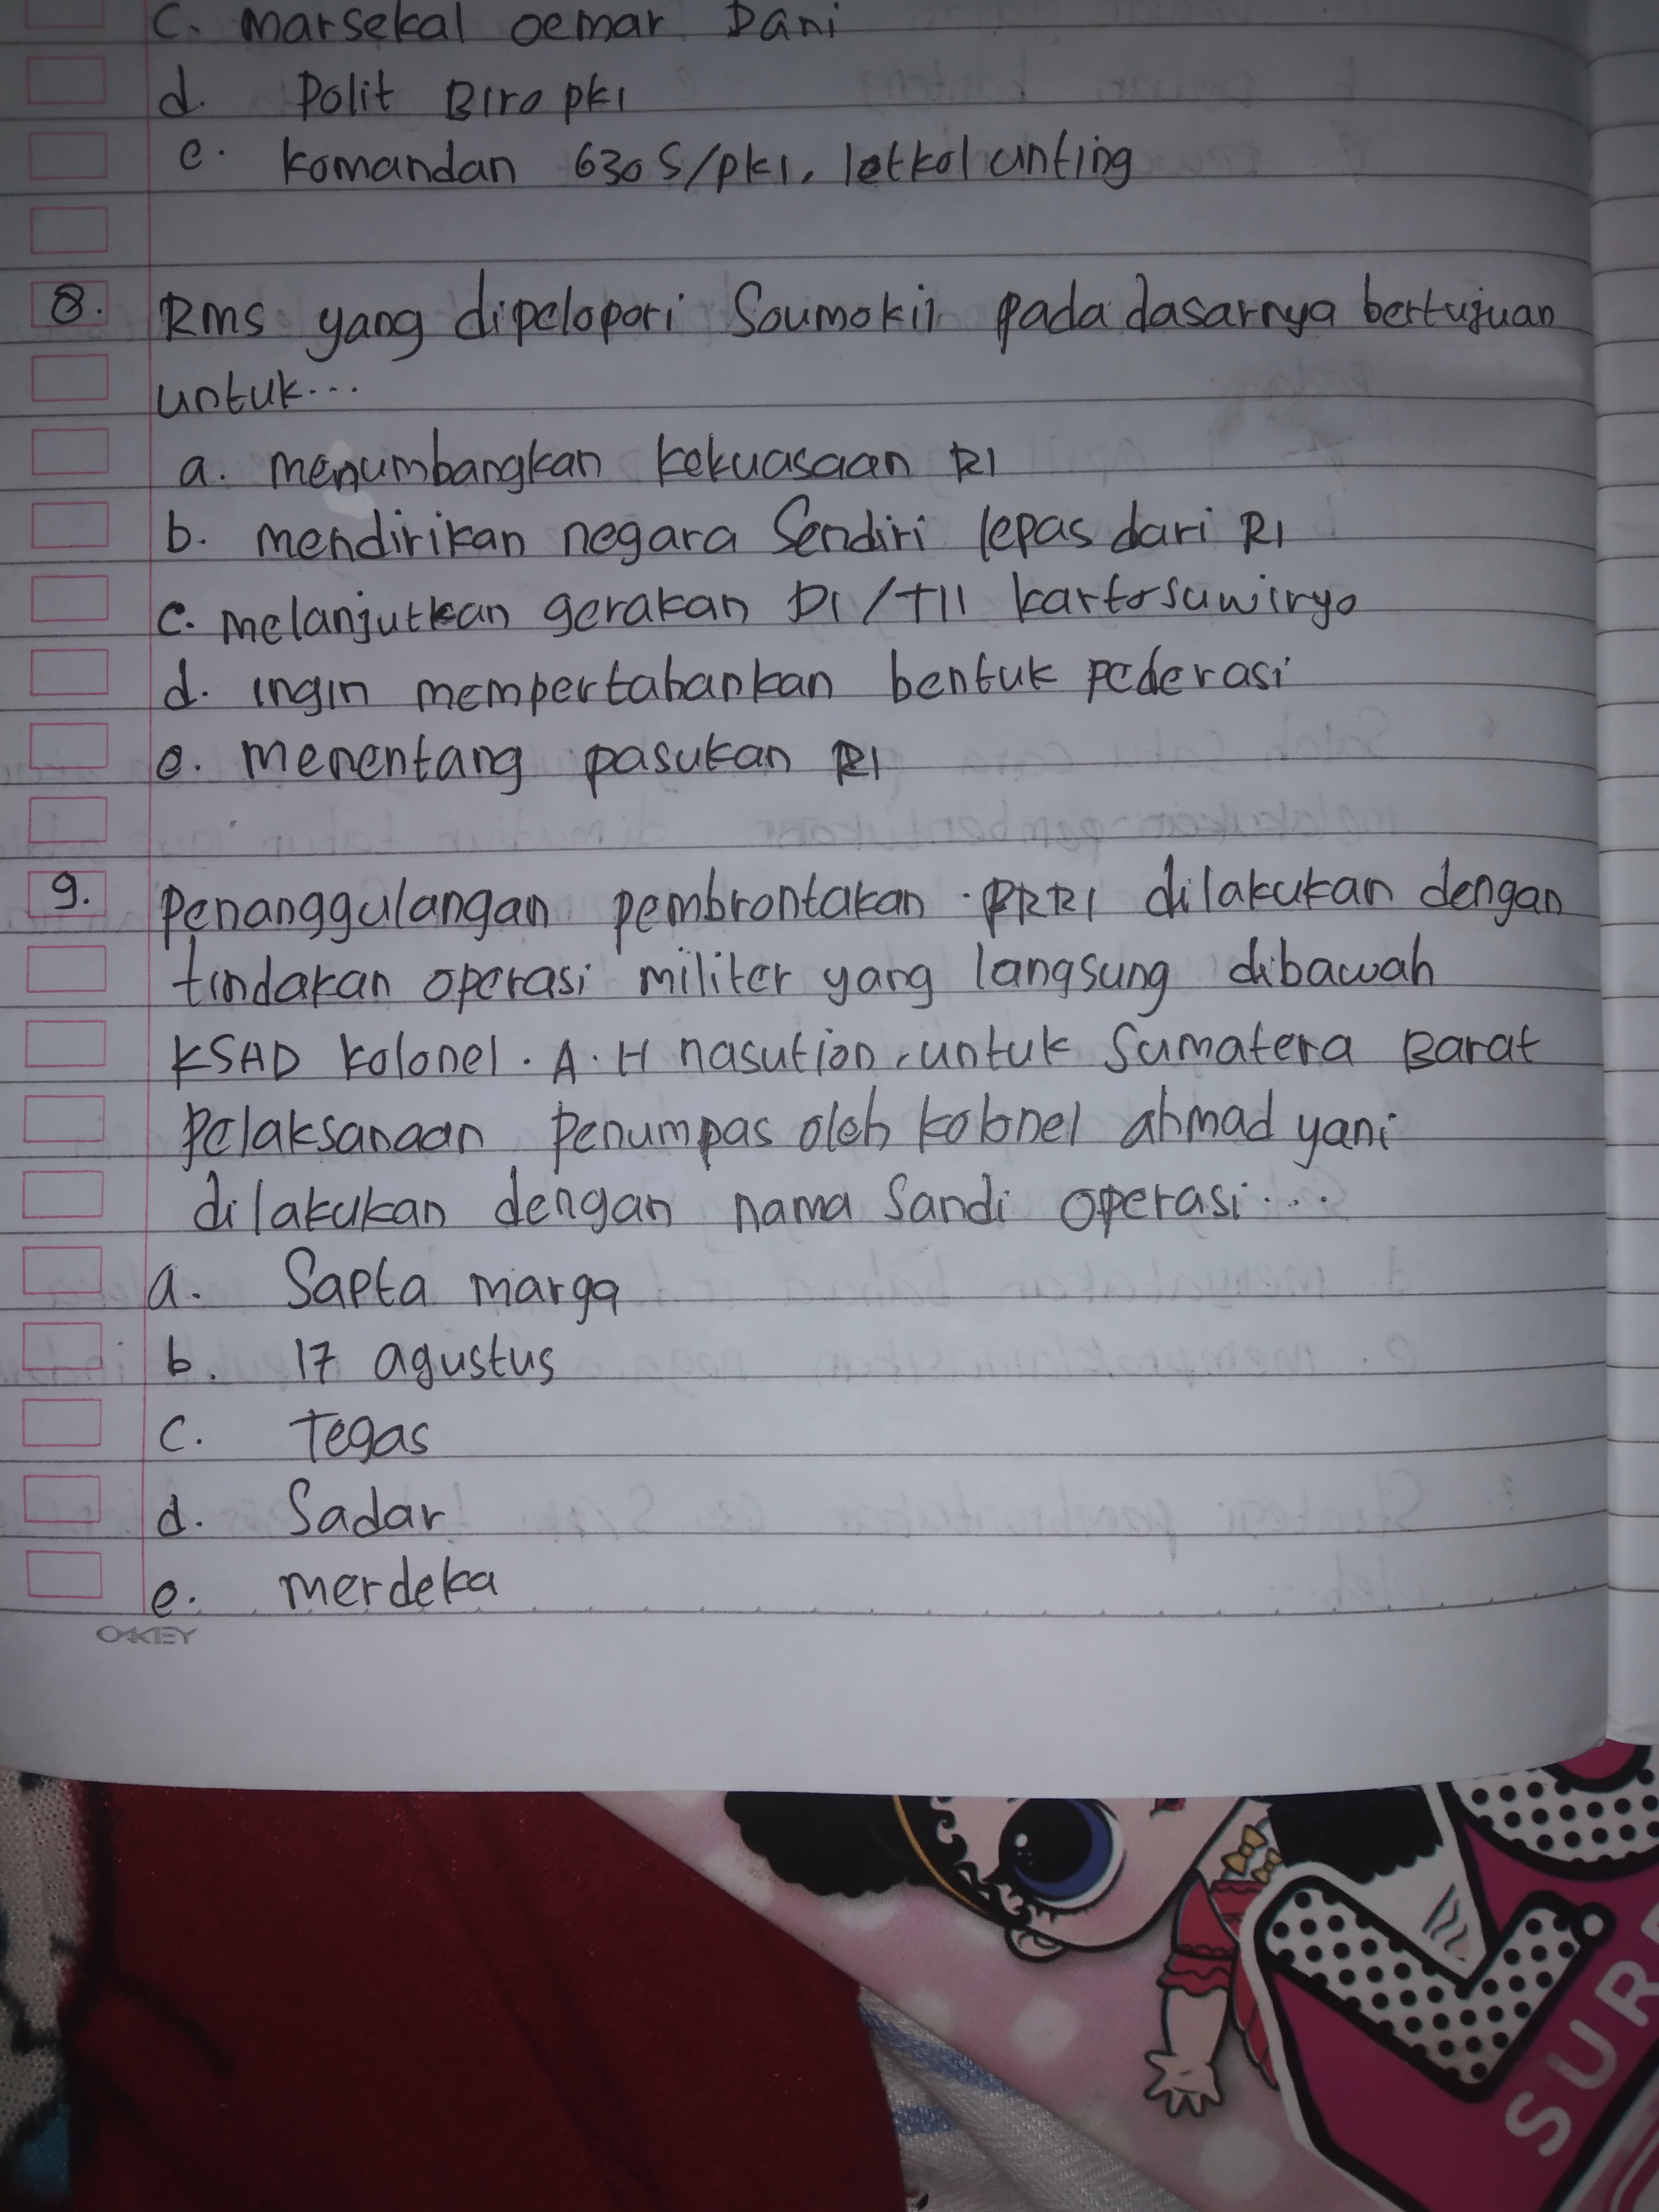 c. marsekal oemar Dani
d. Polit Biro pki
e. komandan 630 S/pki, letkol unting
8. Rms yang dipelopori Soumokil pada dasarnya bertujuan
untuk...
a. menumbangkan kekuasaan RI
b. mendirikan negara Sendiri lepas dari RI
c. melanjutkan gerakan DI/TII kartosuwiryo
d. ingin mempertahankan bentuk pederasi
e. menentang pasukan RI
9. Penanggulangan pembrontakan PRRI dilakukan dengan
tindakan operasi militer yang langsung dibawah
KSAD kolonel. A. H nasution, untuk Sumatera Barat
Pelaksanaan Penumpas oleh kolonel ahmad yani
dilakukan dengan nama Sandi operasi...
a. Sapta marga
b. 17 agustus
c. Tegas
d. Sadar
e. merdeka
OKEY
SUR